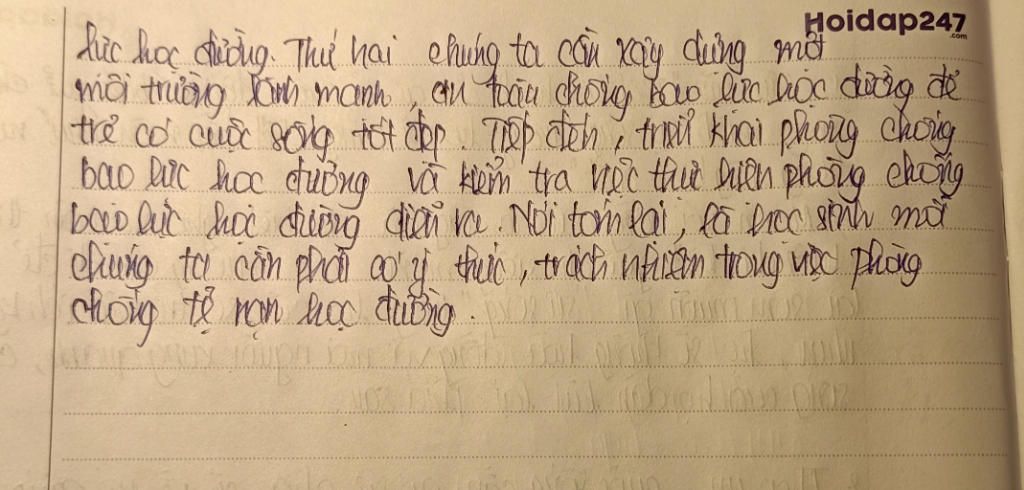 Hoidap247
.com
lực học đường. Thứ hai chúng ta cần xây dựng một
môi trường lành mạnh, an toàn chống bạo lực học đường để
trẻ có cuộc sống tốt đẹp. Tiếp đến, triển khai phòng chống
bạo lực học đường và kiểm tra việc thực hiện phòng chống
bạo lực học đường diễn ra. Nói tóm lại, là học sinh mỗi
chúng ta cần phải có ý thức, trách nhiệm trong việc phòng
chống tệ nạn học đường.